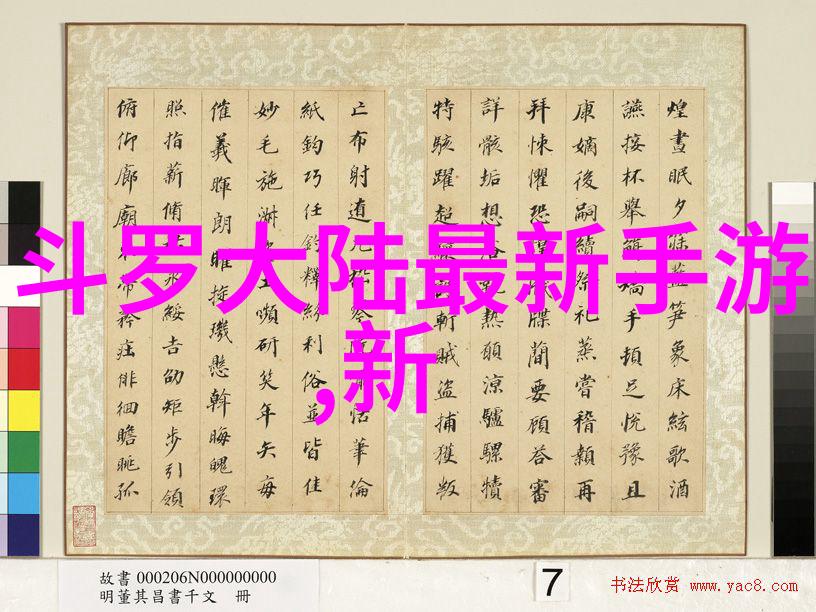 煌晝眠夕寐藍笋象床絃歌酒
讌接杯舉觴矯手頓足悅豫且
康嫡後嗣續祭祀蒸嘗稽顙再
拜悚懼恐牒簡要顧答審
詳骸垢想浴熱願凉驢騾犢
特駭躍超斬賊盜捕獲叛
亡布射遼丸恬筆倫
紙鈞巧任釣釋紛利俗並皆佳
妙毛施淑嚬研笑年矢每
催羲暉朗曜旋璣懸斡晦魄環
照指薪脩永綏吉劭矩步引領
俯仰廊廟帶矜莊徘徊瞻眺孤
斗罗大陆最新手游
,新
故書 000206N000000000
明董其昌書千文 冊
7
书法欣赏 www.yac8.com